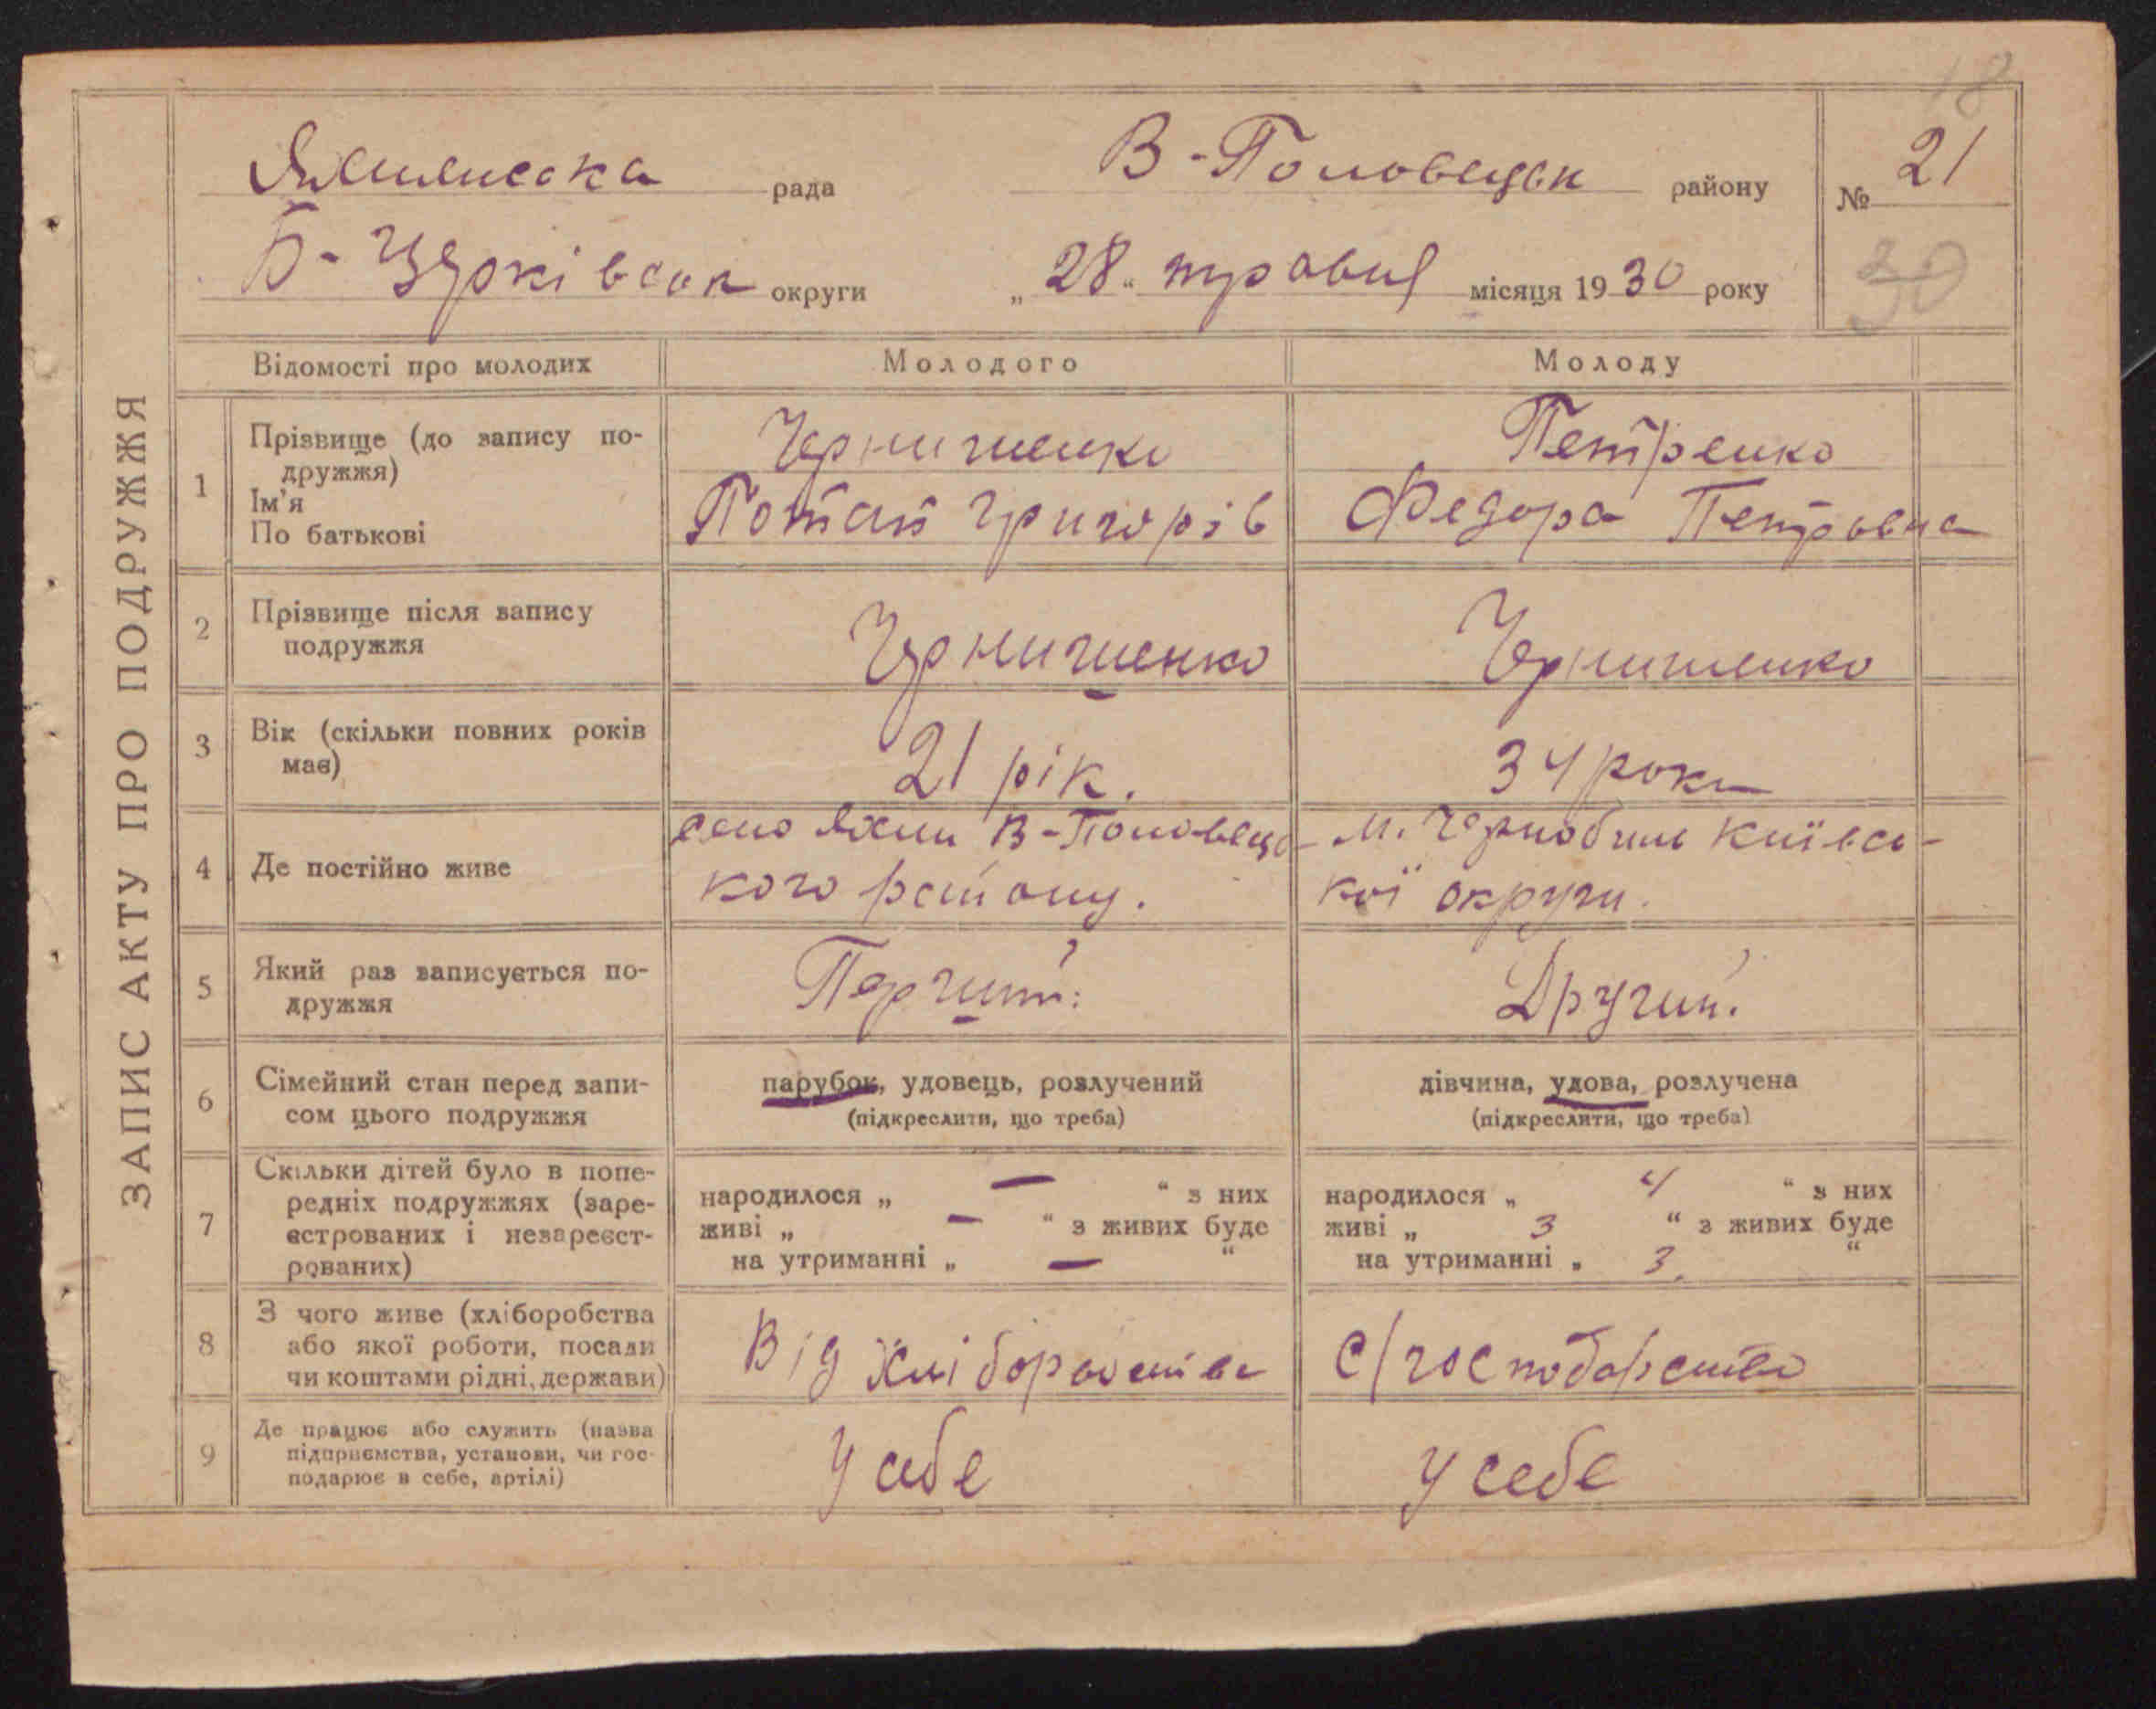 18
Яхнянсока рада В-Половецьк району № 21
Б-Церківськ округи „28“ травня місяця 1930 року 30
ЗАПИС АКТУ ПРО ПОДРУЖЖЯ
Відомості про молодих Молодого Молоду
1 Прізвище (до запису по-
дружжя)
Ім'я
По батькові
Чернишенко
Потап Григорів
Петренко
Федора Петровна
2 Прізвище після запису
подружжя
Чернишенко
Чернишенко
3 Вік (скільки повних років
має)
21 рік.
34 роки
4 Де постійно живе
село Яхни В-Половець-
кого району.
м. Чернобиль Київсь-
кої округи.
5 Який раз записується по-
дружжя
Перший.
Другий.
6 Сімейний стан перед запи-
сом цього подружжя
парубок, удовець, розлучений
(підкреслити, що треба)
дівчина, удова, розлучена
(підкреслити, що треба)
7 Скільки дітей було в попе-
редніх подружжях (заре-
єстрованих і незареєст-
рованих)
народилося „ — “ з них
живі „ — “ з живих буде
на утриманні „ — “
народилося „ 4 “ з них
живі „ 3 “ з живих буде
на утриманні „ 3. “
8 З чого живе (хліборобства
або якої роботи, посади
чи коштами рідні, держави)
Від хліборобства
С/господарство
9 Де працює або служить (назва
підприємства, установи, чи гос-
подарює в себе, артілі)
У себе
У себе